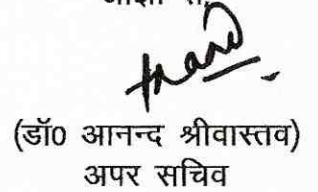 (डॉ0 आनन्द श्रीवास्तव)
अपर सचिव